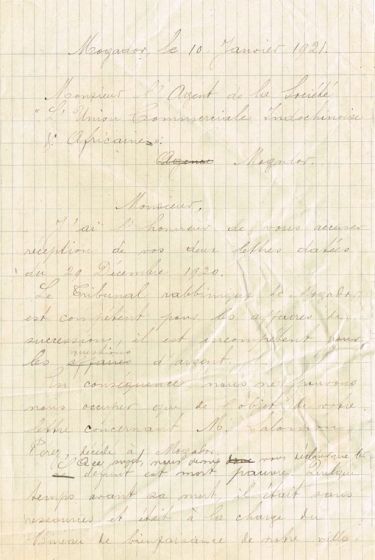 Mogador, le 10 Janvier 1921.
Monsieur l'Agent de la Société
"L'Union Commerciale Indochinoise
& Africaine":
Mogador.
Monsieur,
J'ai l'honneur de vous accuser
réception de vos deux lettres datées
du 20 Décembre 1920.
Le Tribunal rabbinique de Mogador
est compétent pour les affaires de
succession, il est incompétent pour
les affaires questions d'argent.
En conséquence nous ne pouvons
nous occuper que de l'objet de votre
lettre concernant M. Salomon
Perez, décédé à Mogador.
A ce sujet, nous devons vous déclarer que le
défunt est mort pauvre. Quelque
temps avant sa mort il était sans
ressources et était à la charge du
Bureau de bienfaisance de notre ville.